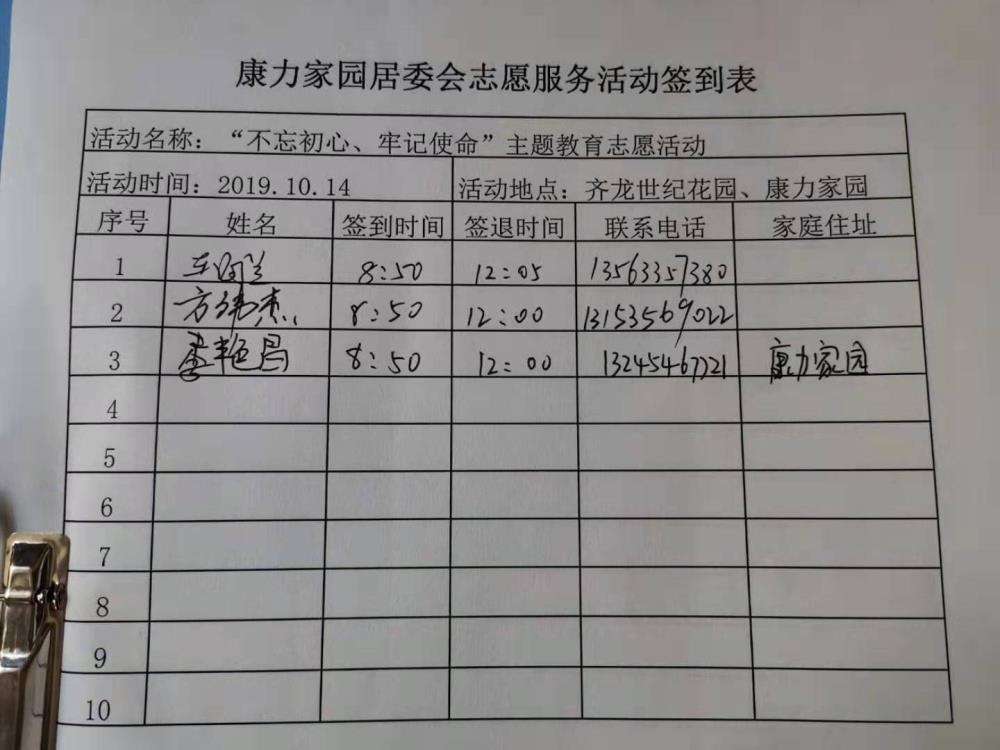 康力家园居委会志愿服务活动签到表
活动名称：“不忘初心、牢记使命”主题教育志愿活动
活动时间：2019.10.14 活动地点：齐龙世纪花园、康力家园
序号 姓名 签到时间 签退时间 联系电话 家庭住址
1 8:50 12:05 13563357380
2 方纬杰 8:50 12:00 13153569022
3 李艳昌 8:50 12:00 13245467721 康力家园
4
5
6
7
8
9
10